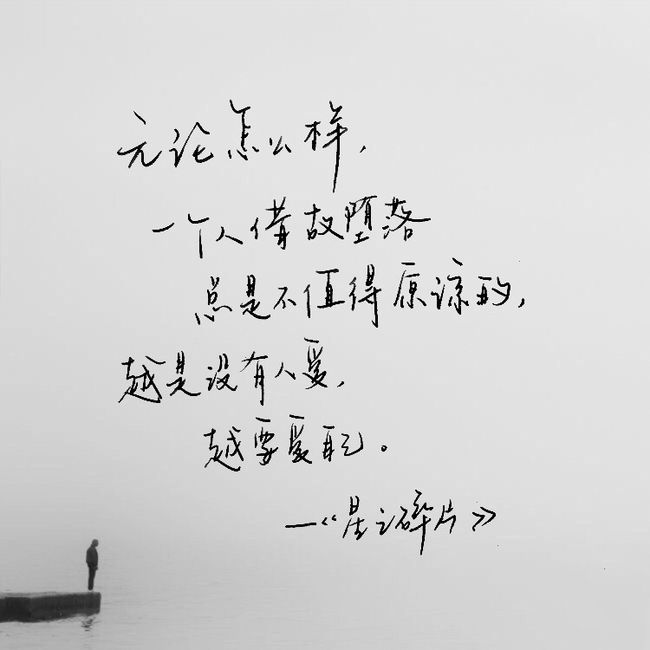 无论怎么样，
一个人借故堕落
总是不值得原谅的，
越是没有人爱，
越要爱自己。
—《星之碎片》